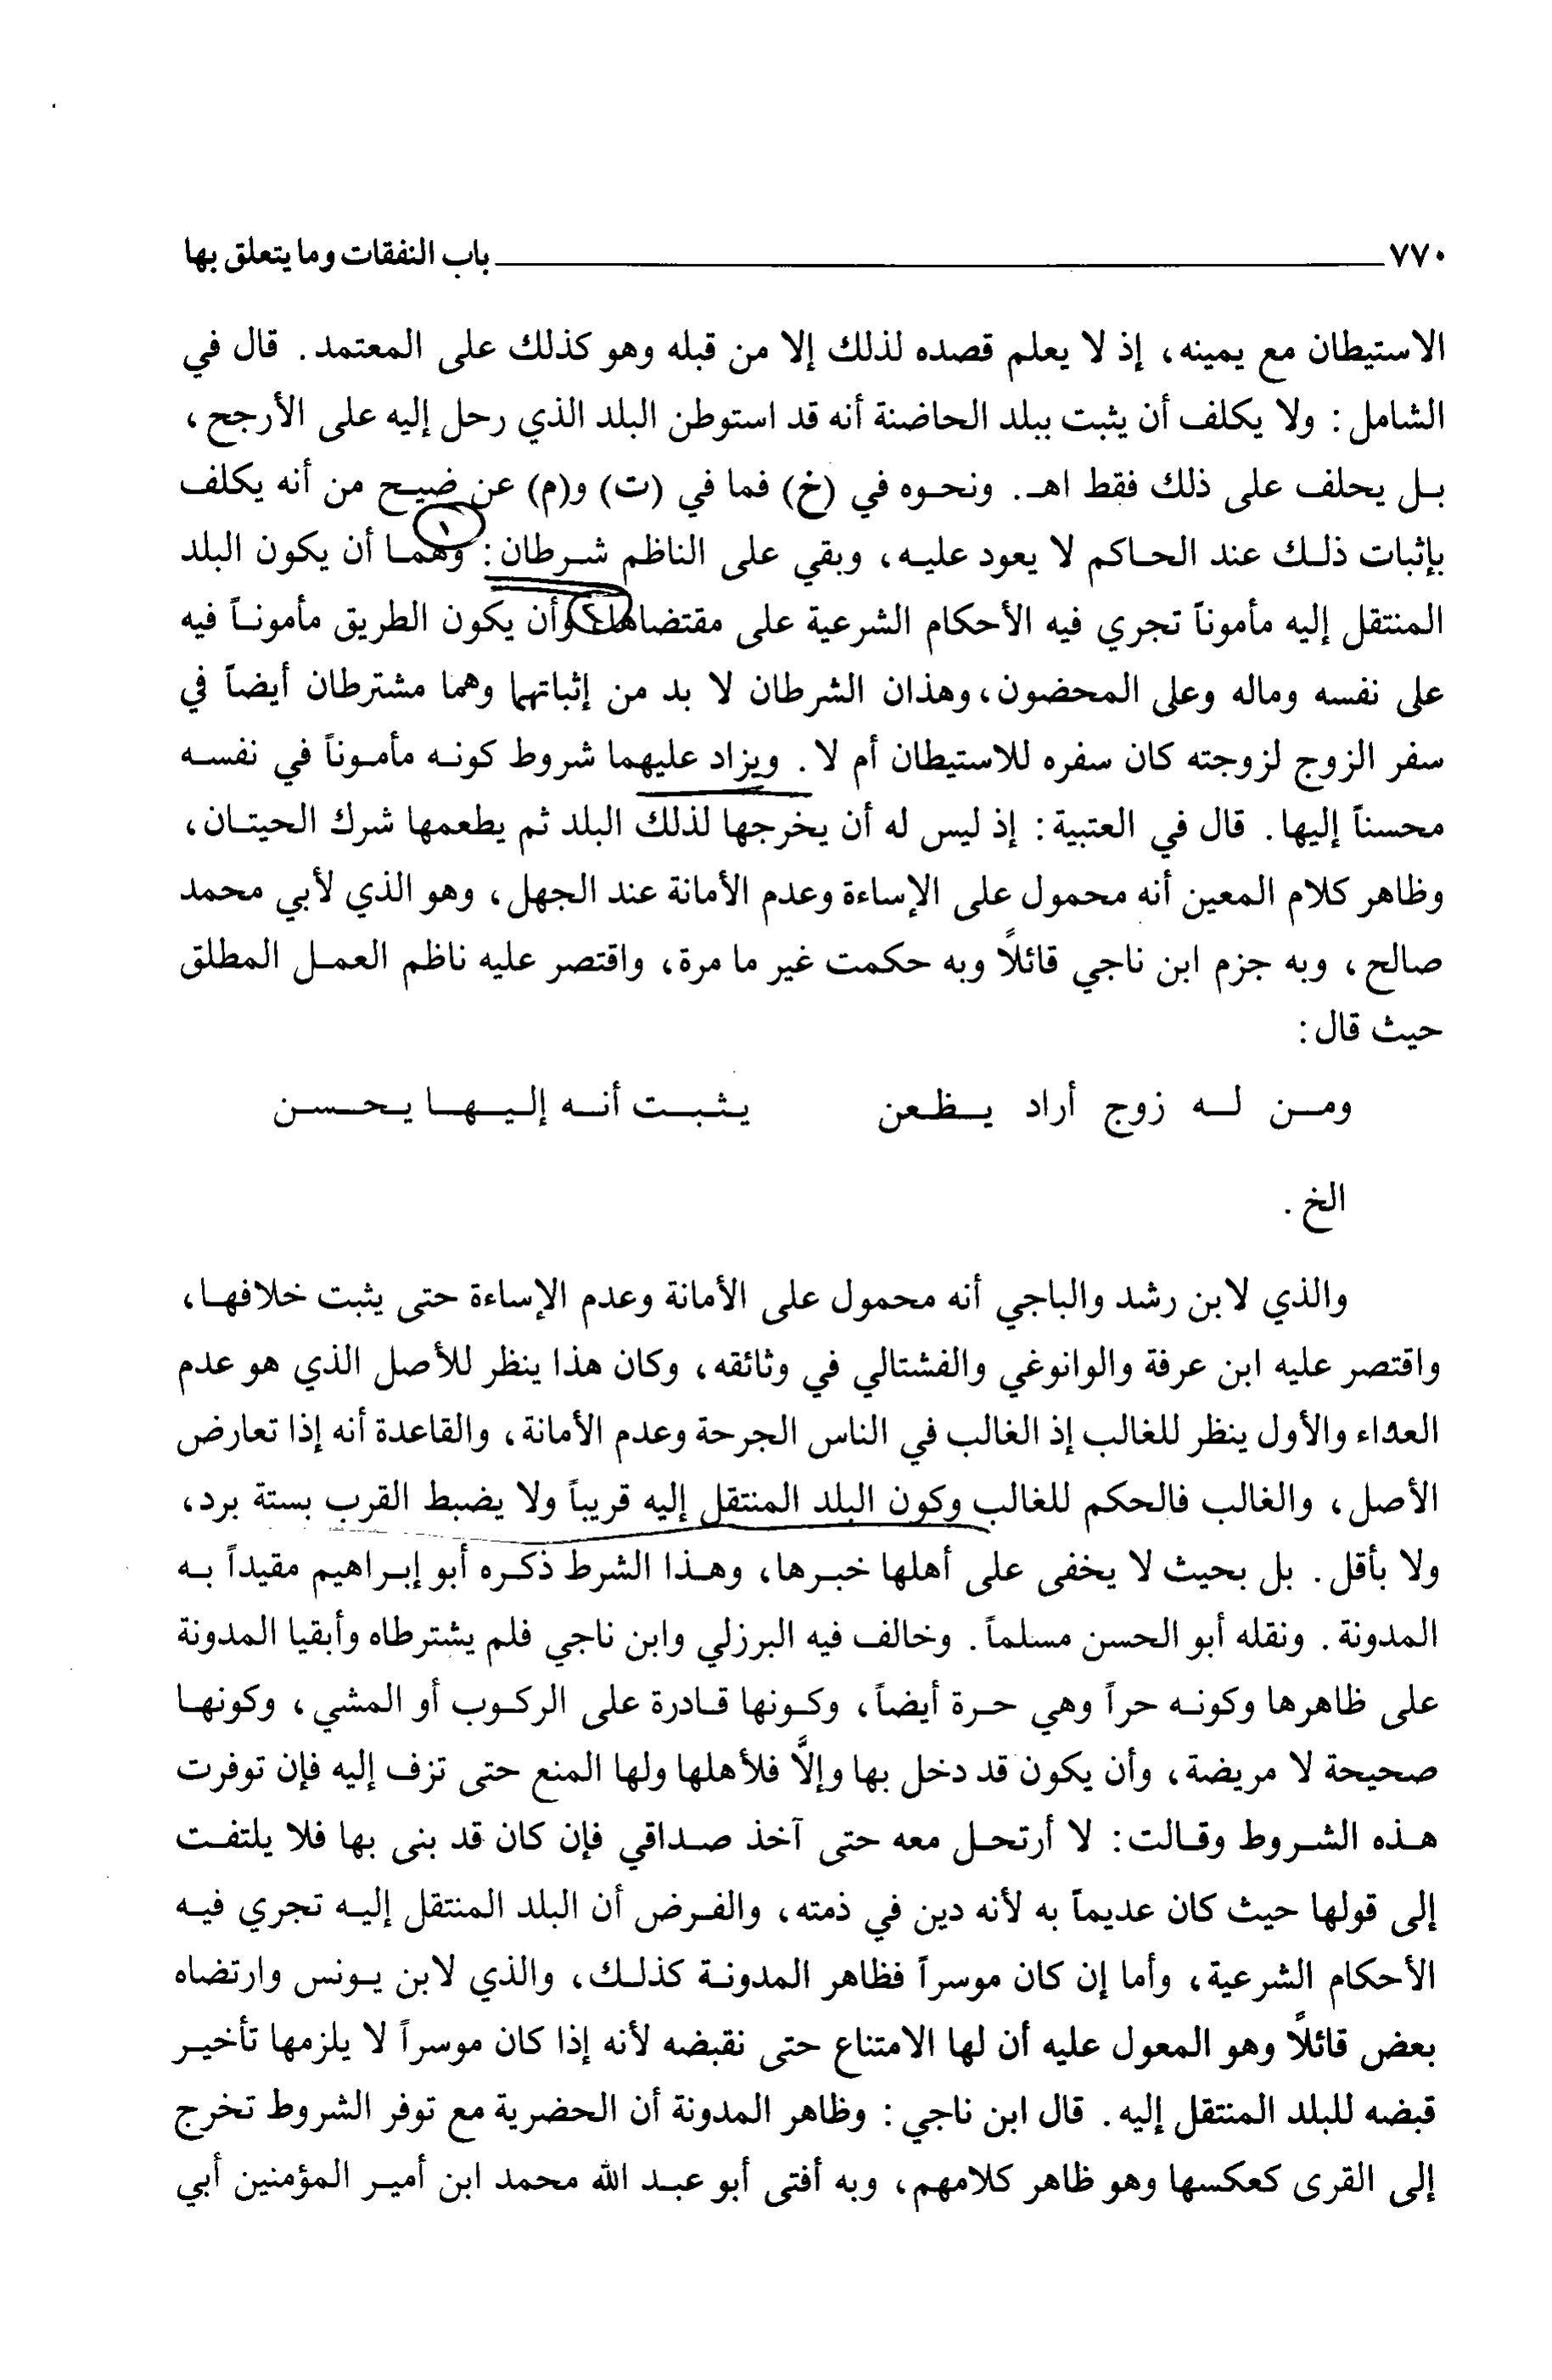 ٧٧٠ باب النفقات وما يتعلق بها
الاستيطان مع يمينه، إذ لا يعلم قصده لذلك إلا من قبله وهو كذلك على المعتمد. قال في
الشامل: ولا يكلف أن يثبت ببلد الحاضنة أنه قد استوطن البلد الذي رحل إليه على الأرجح،
بل يحلف على ذلك فقط اهـ. ونحوه في (خ) فما في (ت) و(م) عن ضيح من أنه يكلف
بإثبات ذلك عند الحاكم لا يعود عليه، وبقي على الناظم شرطان: وهما أن يكون البلد
المنتقل إليه مأموناً تجري فيه الأحكام الشرعية على مقتضاها، وأن يكون الطريق مأموناً فيه
على نفسه وماله وعلى المحضون، وهذان الشرطان لا بد من إثباتهما وهما مشترطان أيضاً في
سفر الزوج لزوجته كان سفره للاستيطان أم لا. ويزاد عليهما شروط كونه مأموناً في نفسه
محسناً إليها. قال في العتبية: إذ ليس له أن يخرجها لذلك البلد ثم يطعمها شرك الحيتان،
وظاهر كلام المعين أنه محمول على الإساءة وعدم الأمانة عند الجهل، وهو الذي لأبي محمد
صالح، وبه جزم ابن ناجي قائلاً وبه حكمت غير ما مرة، واقتصر عليه ناظم العمل المطلق
حيث قال:
ومن له زوج أراد يظعن يثبت أنه إليها يحسن
الخ.
والذي لابن رشد والباجي أنه محمول على الأمانة وعدم الإساءة حتى يثبت خلافها،
واقتصر عليه ابن عرفة والوانوغي والفشتالي في وثائقه، وكان هذا ينظر للأصل الذي هو عدم
العداء والأول ينظر للغالب إذ الغالب في الناس الجرحة وعدم الأمانة، والقاعدة أنه إذا تعارض
الأصل، والغالب فالحكم للغالب وكون البلد المنتقل إليه قريباً ولا يضبط القرب بستة برد،
ولا بأقل. بل بحيث لا يخفى على أهلها خبرها، وهذا الشرط ذكره أبو إبراهيم مقيداً به
المدونة. ونقله أبو الحسن مسلماً. وخالف فيه البرزلي وابن ناجي فلم يشترطاه وأبقيا المدونة
على ظاهرها وكونه حراً وهي حرة أيضاً، وكونها قادرة على الركوب أو المشي، وكونها
صحيحة لا مريضة، وأن يكون قد دخل بها وإلاَّ فلأهلها ولها المنع حتى تزف إليه فإن توفرت
هذه الشروط وقالت: لا أرتحل معه حتى آخذ صداقي فإن كان قد بنى بها فلا يلتفت
إلى قولها حيث كان عديماً به لأنه دين في ذمته، والفرض أن البلد المنتقل إليه تجري فيه
الأحكام الشرعية، وأما إن كان موسراً فظاهر المدونة كذلك، والذي لابن يونس وارتضاه
بعض قائلاً وهو المعول عليه أن لها الامتناع حتى نقبضه لأنه إذا كان موسراً لا يلزمها تأخير
قبضه للبلد المنتقل إليه. قال ابن ناجي: وظاهر المدونة أن الحضرية مع توفر الشروط تخرج
إلى القرى كعكسها وهو ظاهر كلامهم، وبه أفتى أبو عبد الله محمد ابن أمير المؤمنين أبي